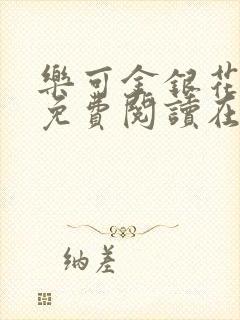 樂可金銀花
免費閱讀在
納差